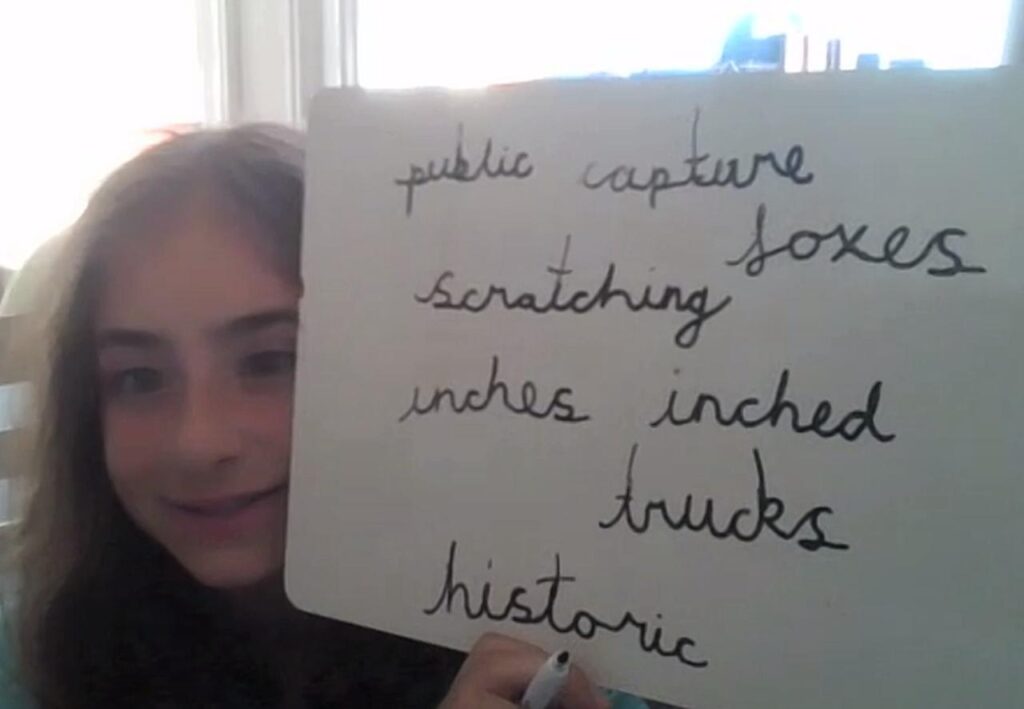 public capture
foxes
scratching
inches inched
trucks
historic